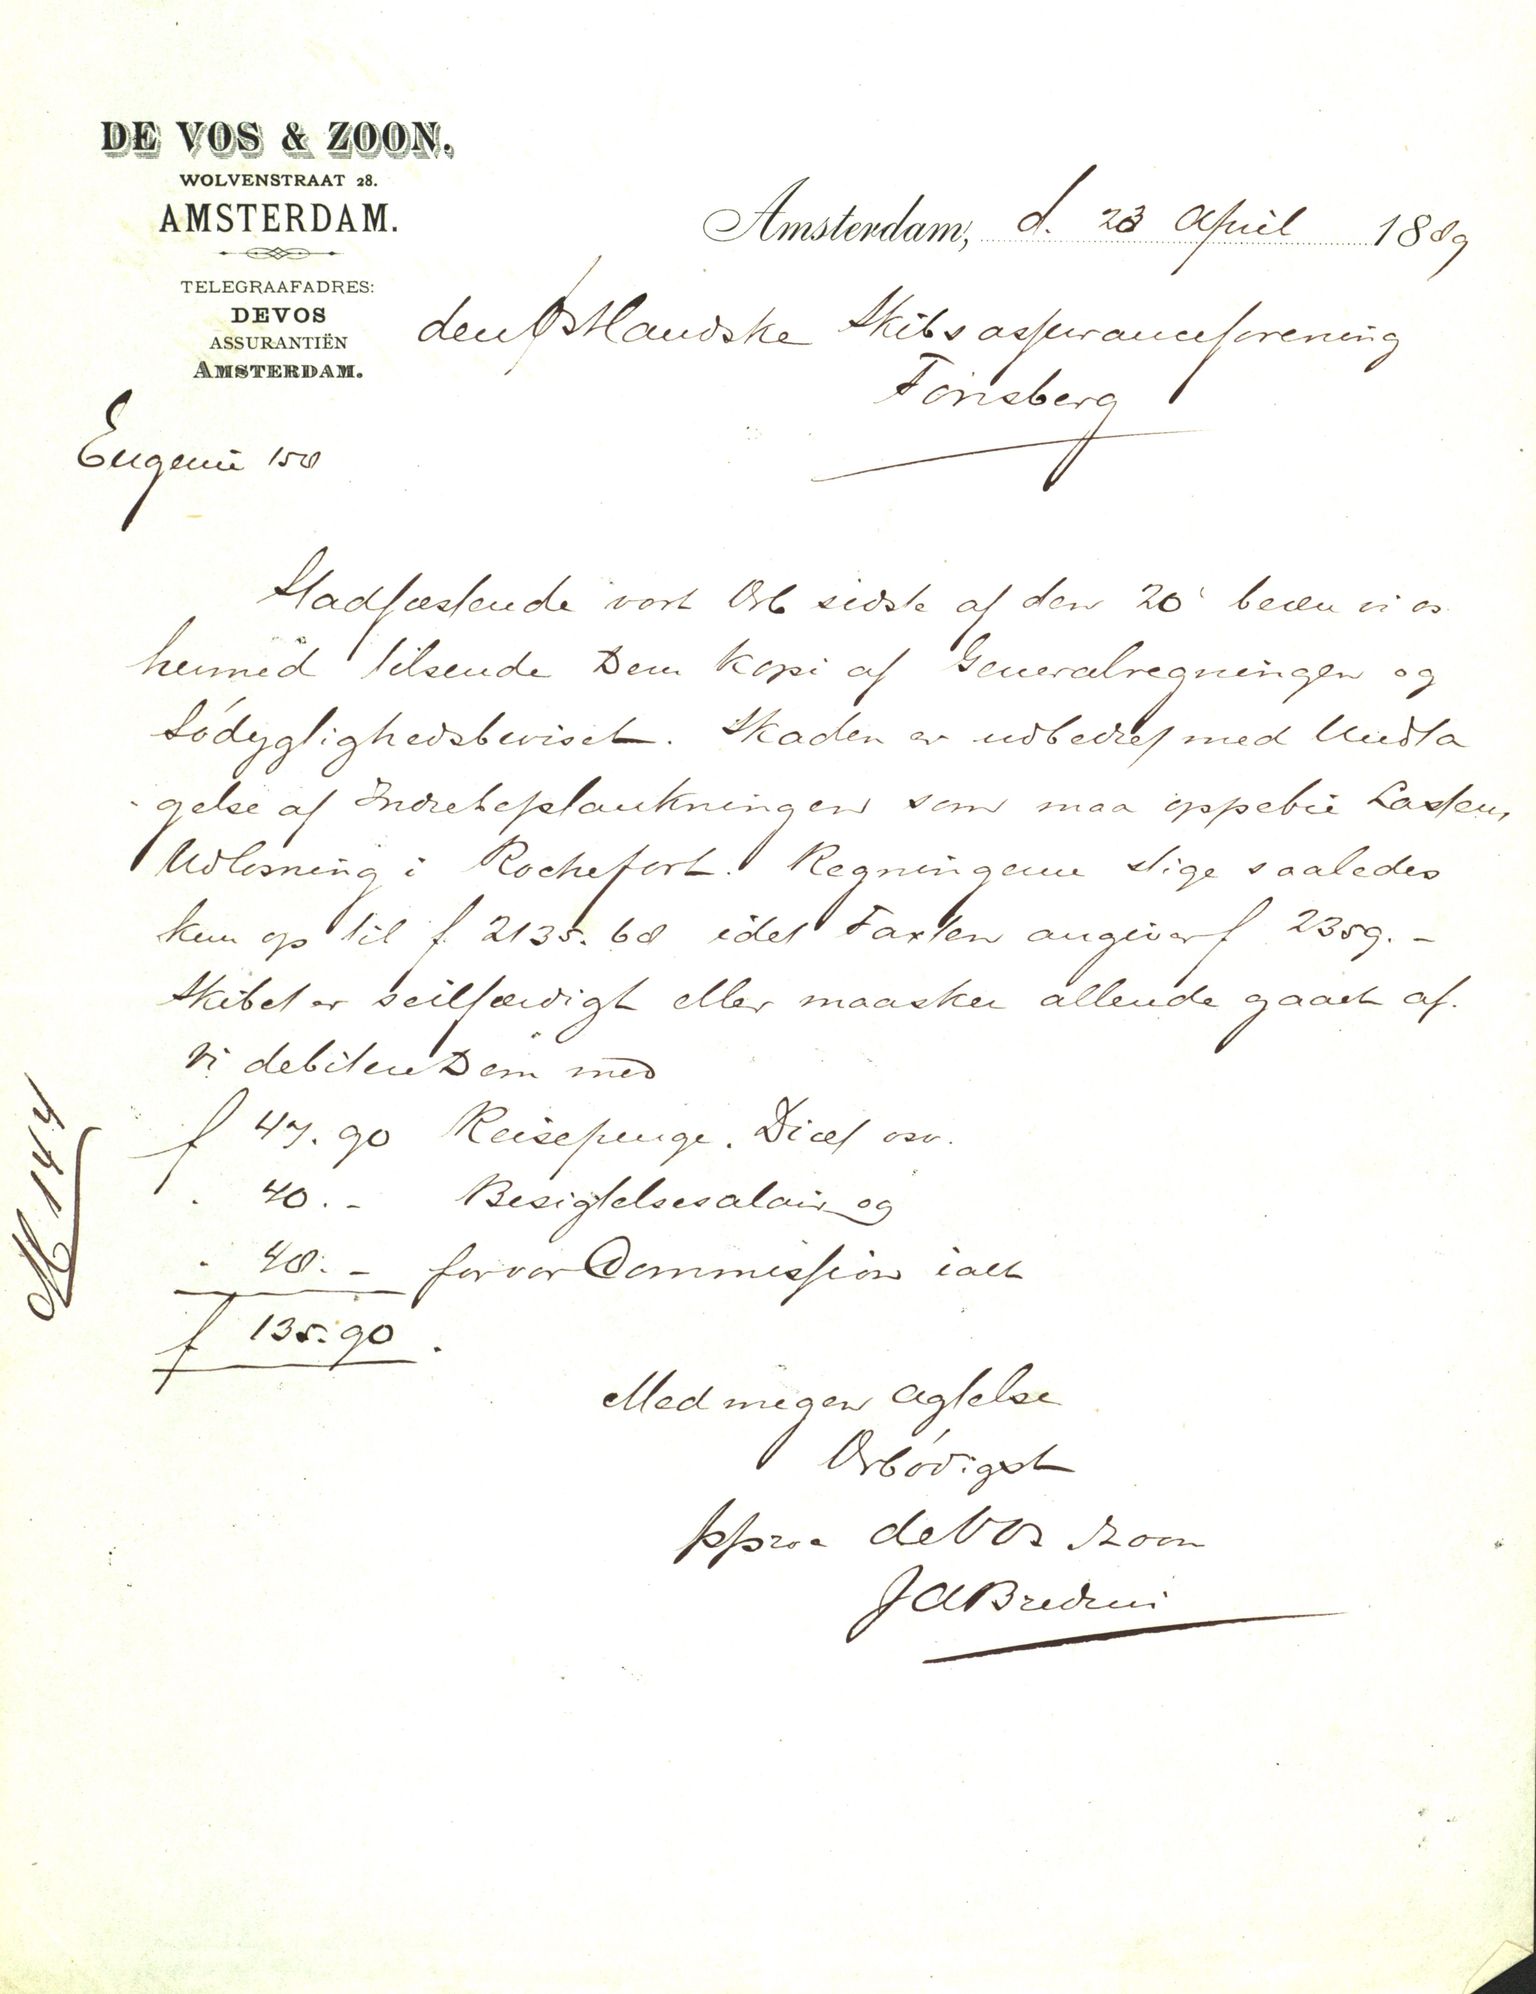 DE VOS & ZOON.
WOLVENSTRAAT 28.
AMSTERDAM.
TELEGRAAFADRES:
DEVOS
ASSURANTIËN
AMSTERDAM.
Amsterdam, d. 23 April 1889
den Østlandske Skibsassuranceforening
Tönsberg
Eugenie 158
Stadfæstende vort Ærb sidste af den 20' bede vi os
hermed tilsende Dem Kopi af Generalregningen og
Södygtighedsbeviset. Skaden er udbedret med Undta
gelse af som maa oppebie Lastens
Udlosning i Rochefort. Regningerne stige saaledes
kun op til f 2135.68 idet Taxten angiver f 2359.-
Skibet er seilfærdigt eller maasken allerede gaaet af.
Vi debitere Dem med
f 47.90 Reisepenge, Diæt osv.
" 40.- Besigtelsesalair og
" 48.- for vor Commission ialt
f 135.90.
Med megen Agtelse
Ærbödigst
pproa de Vos & Zoon
№ 144